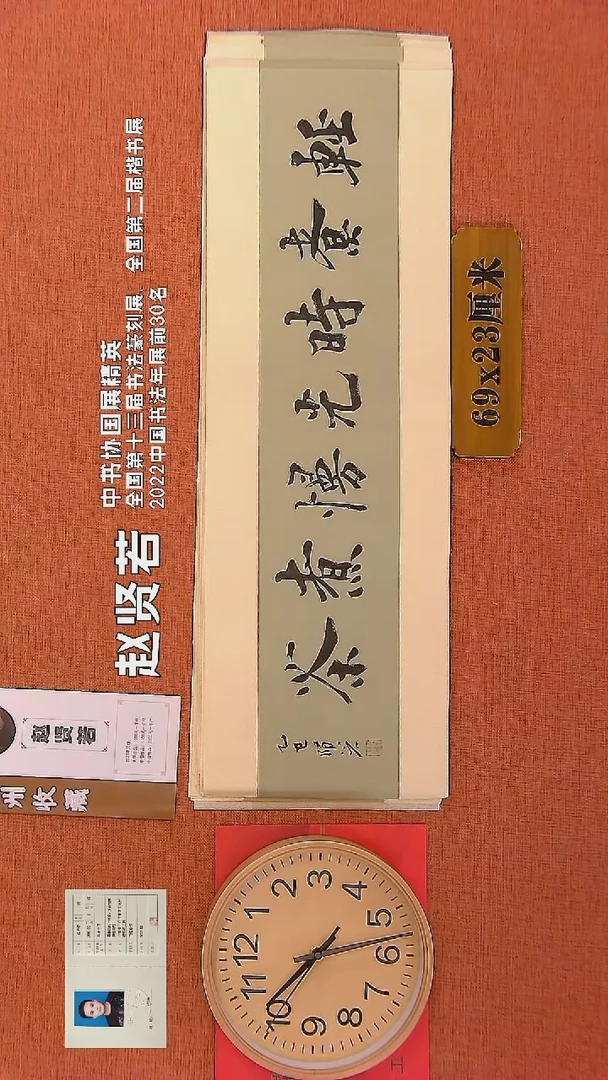 赵贤若
中书协国展精英
全国第十三届书法篆刻展、全国第二届楷书展
2022中国书法年展前30名
輕煮時光慢煮茶
乙巳
69x23厘米
赵贤若
州收藏
12
1
2
3
4
5
6
7
8
9
10
11